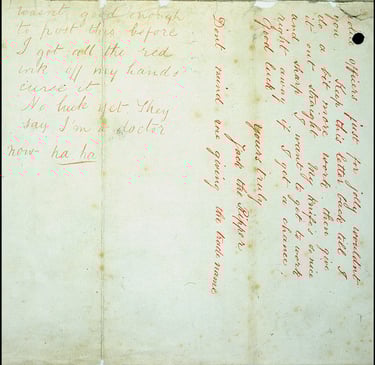 officers just for jolly wouldnt
you. Keep this letter back till I
do a bit more work. then give
it out straight. My knife's so nice
and sharp I want to get to work
right away if I get a chance.
Good luck.
yours truly
Jack the Ripper
Dont mind me giving the trade name
wasnt good enough
to post this before
I got all the red
ink off my hands
curse it
No luck yet. They
say I'm a doctor
now ha ha